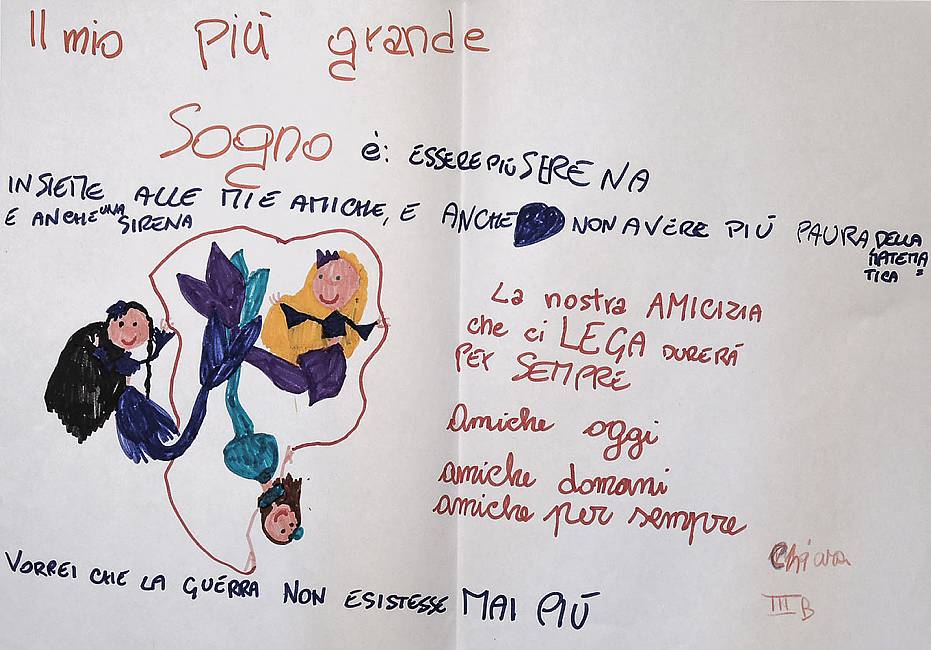 Il mio più grande
Sogno è: ESSERE PIÙ SERENA
INSIEME ALLE MIE AMICHE, E ANCHE NON AVERE PIÙ PAURA DELLA
MATEMA
TICA
E ANCHE UNA SIRENA
La nostra AMICIZIA
che ci LEGA DURERÁ
PER SEMPRE
Amiche oggi
amiche domani
amiche per sempre
Chiara
III B
VORREI CHE LA GUERRA NON ESISTESSE MAI PIÙ